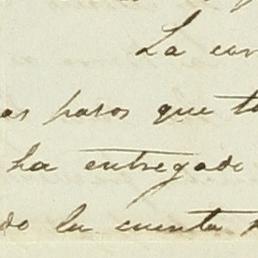 La
pasos que
ha entregado
do la cuenta